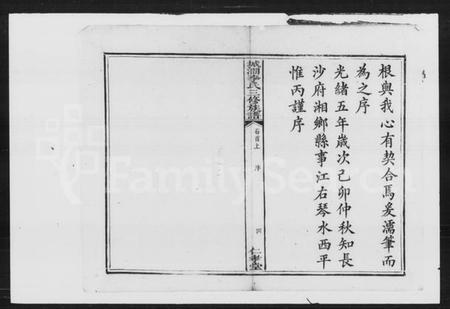 根與我心有契合焉爰濡筆而
為之序
光緒五年歲次己卯仲秋知長
沙府湘鄉縣事江右琴水西平
惟丙謹序
城澗李氏三修族譜
卷首上
序
四
仁孝堂
FamilySearch